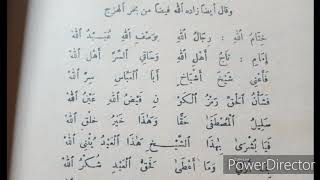 وقال أيضاً زاده الله فيضاً من بحر الهزج
خِتَامُ اللهِ : رِجَالُ اللهِ بِوَصْفِ اللهِ عَبِيدُ اللهِ
إِمَامٌ : تَاجُ أَهْلِ اللهِ وَحَاوِي السِّرِّ أَهْلُ اللهِ
فَأَعْنِي شَيْخَ أَشْيَاخٍ أَبَا الْعَبَّاسِ سِرَّ اللهِ
فَشَأْنُ الْحَقِّ رَمْزُ الْكَوْنِ فَيْضُ اللهِ عَيْنُ اللهِ
سَلِيلُ الْمُصْطَفَى حَقًّا وَهَذَا خَيْرُ خَلْقِ اللهِ
فَيَا بُشْرَى بِهَذَا الشَّيْخِ هَذَا الْعَبْدُ يُثْنِي اللهِ
وَمَا أَعْطَى الْعَبْدِ شُكْرُ اللهِ
PowerDirector